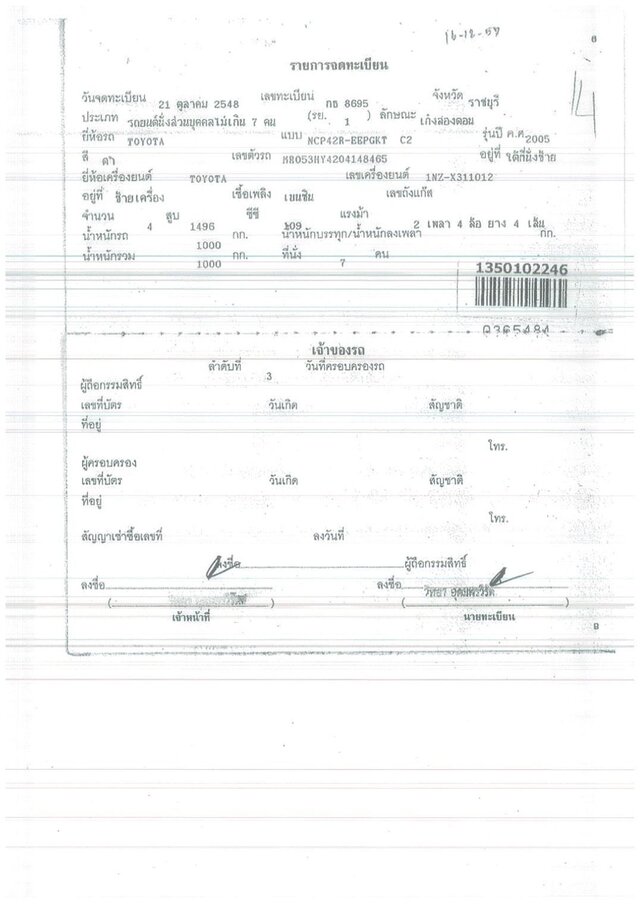 16-12-57
6
รายการจดทะเบียน
วันจดทะเบียน 21 ตุลาคม 2548 เลขทะเบียน กธ 8695 จังหวัด ราชบุรี
ประเภท รถยนต์นั่งส่วนบุคคลไม่เกิน 7 คน (รย. 1 ) ลักษณะ เก๋งสองตอน
ยี่ห้อรถ TOYOTA แบบ NCP42R-EEPGKT C2 รุ่นปี ค.ศ 2005
สี ดำ เลขตัวรถ MR053HY4204148465 อยู่ที่ ใต้ที่นั่งซ้าย
ยี่ห้อเครื่องยนต์ TOYOTA เลขเครื่องยนต์ 1NZ-X311012
อยู่ที่ ซ้ายเครื่อง เชื้อเพลิง เบนซิน เลขถังแก๊ส
จำนวน 4 สูบ 1496 ซีซี 109 แรงม้า 2 เพลา 4 ล้อ ยาง 4 เส้น
น้ำหนักรถ 1000 กก. น้ำหนักบรรทุก/น้ำหนักลงเพลา กก.
น้ำหนักรวม 1000 กก. ที่นั่ง 7 คน
1350102246
0365484
เจ้าของรถ
ลำดับที่ 3 วันที่ครอบครองรถ
ผู้ถือกรรมสิทธิ์
เลขที่บัตร วันเกิด สัญชาติ
ที่อยู่
โทร.
ผู้ครอบครอง
เลขที่บัตร วันเกิด สัญชาติ
ที่อยู่
โทร.
สัญญาเช่าซื้อเลขที่ ลงวันที่
ลงชื่อ ผู้ถือกรรมสิทธิ์
ลงชื่อ ลงชื่อ
( ) ( )
เจ้าหน้าที่ นายทะเบียน